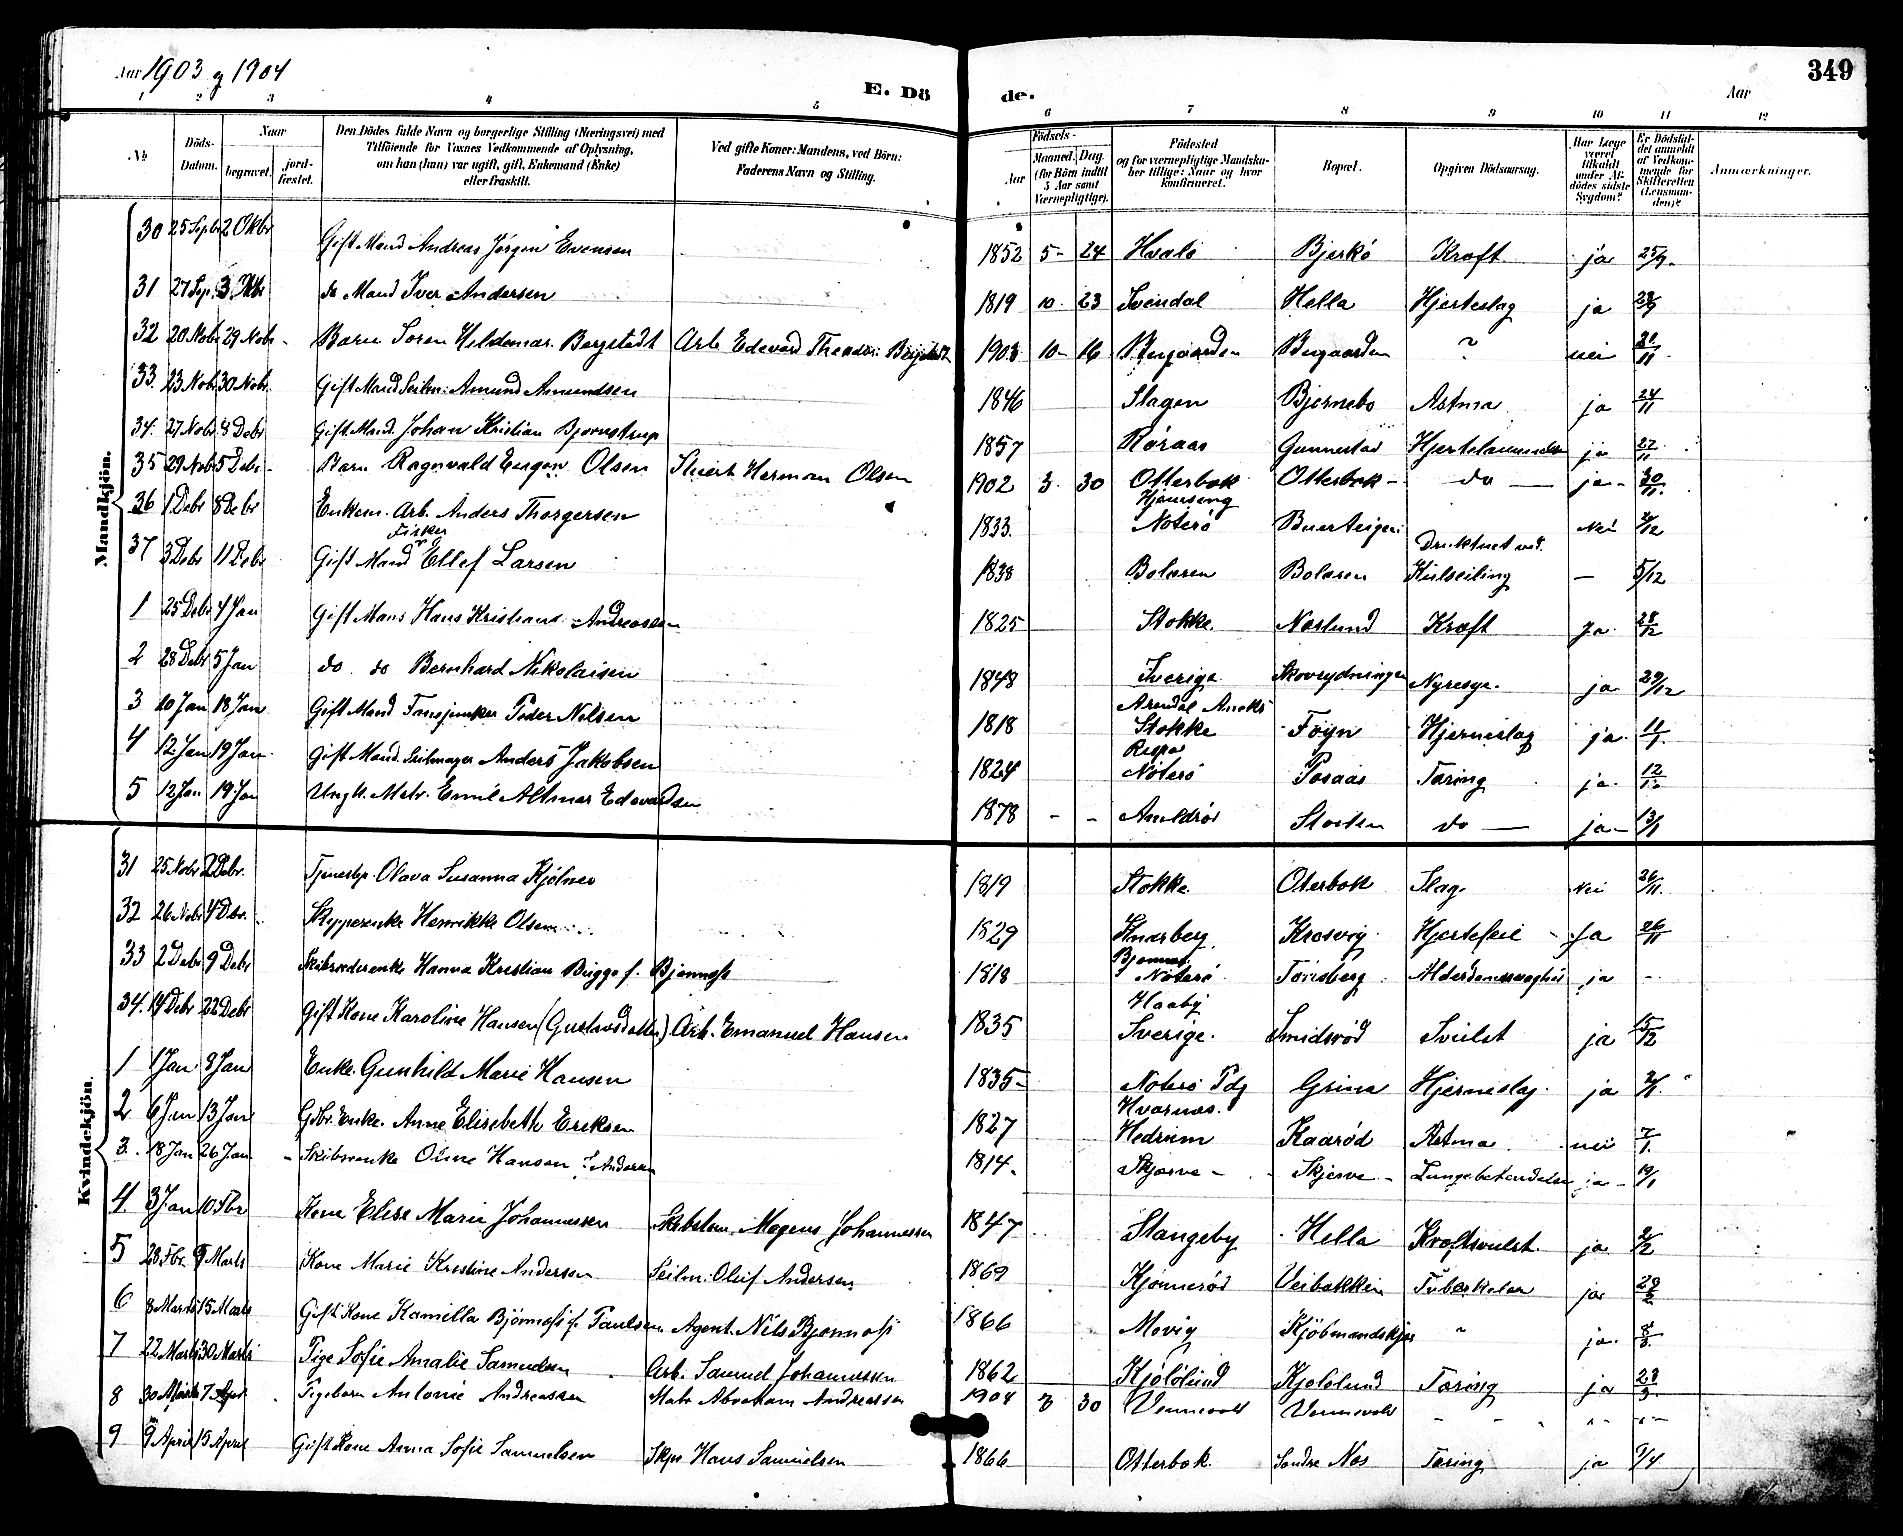 Aar 1903 og 1904
E. Dö de.
Aar
349
1 2 3 4 5 6 7 8 9 10 11 12
No.
Döds-Datum.
Naar begravet. jord-fæstet.
Den Dödes fulde Navn og borgerlige Stilling (Næringsvei) med Tilföiende for Voxnes Vedkommende af Oplysning, om han (hun) var ugift, gift, Enkemand (Enke) eller fraskilt.
Ved gifte Koner: Mandens, ved Börn: Faderens Navn og Stilling.
Födsels-
Aar
Maaned. Dag. (for Börn indtil 5 Aar samt Værnepligtige).
Födested og for værnepligtige Mandskaber tillige: Naar og hvor konfirmeret.
Bopæl.
Opgiven Dödsaarsag.
Har Læge været tilkaldt under Afdödes sidste Sygdom?
Er Dödsfaldet anmeldt af Vedkommende for Skifteretten (Lensmanden)?
Anmærkninger.
Mandkjön.
30 25 Septbr 2 Oktbr Gift Mand Andreas Jörgen Evensen 1852 5- 24 Hvalö Bjerkö Kræft ja 25/9
31 27 Sep. 3 Oktbr do Mand Iver Andersen 1819 10 23 Svendal Hella Hjerteslag ja 28/9
32 20 Nobr 29 Nobr - Barn Soren Heldemar Bergstedt Arb. Edevard Theodor Bergstedt 1903 10- 16 Bugaarden Bugaarden ? nei 21/11
33. 23 Nobr 30 Nobr. Gift Mand Seilm: Amund Amundsen 1846 Slagen Bjernebo Astma ja 24/11
34. 27 Nobr 8 Debr Gift Mand. Johan Kristian Bjornstrup 1857 Röraas Gunnestad Hjertelammelse ja 27/11
35 29 Nobr 5 Debr - Barn Ragnvald Eugen Olsen Stuert Herman Olsen 1902 3 30 Otterbok Otterbok - do — ja - 30/11
36 1 Debr 8 Debr Enkem. Arb. Anders Thorgersen 1833. Hjemseng Noterö Buerteigen Nei 2/12
37 3 Debr 11 Debr Fisker og Gift Mand Ellef Larsen 1838 Bolæren Bolæren Druktnet ved Kulseiling — 5/12
1 25 Debr 4 Jan Gift Mand Hans Kristians. Andreassen 1825 Stokke Næslund Kræft Ja 28/12
2 28 Debr 5 Jan do do Bernhard Nikolaisen 1848 Sverige Skovrydningen Nyresyge ja 29/12
3 10 Jan 18 Jan Gift Mand Fansjunker Peder Nilsen 1818 Arendal Aneks Stokke Föyn Hjerneslag ja 11/1
4 12 Jan 19 Jan Gift Mand. Seilmager Anders Jakobsen 1824 Ræspa Nöterö Posaas Tæring ja 12/1
5 12 Jan 19 Jan Ungk. Matr. Emil Altmar Edevardsen 1878 - - Amldröd Storten do — ja - 13/1
Kvindekjön.
31 25 Nobr 2 Debr. Tjenestp. Olava Susanna Kjölner 1819 Stokke Oterbok Slag Nei 26/11
32 26 Nobr 4 Dbr. Skipperenke Henrikke Olsen 1829 Knarberg Krosvig Hjertefeil - Ja 26/11
33 2 Debr 9 Debr Skibsrederenke Hanna Kristian Bugge f. Bjönness 1818 Bjönnes Noterö Tönsberg Alderdomssvaghed ja -
34. 14 Debr 22 Debr Gift Kone Karoline Hansen (Gustavsdatter) Arb. Emanuel Hansen 1835 Haaby Sverige Smidsröd Svulst ja 15/12
1 1 Jan 8 Jan Enke Gunhild Marie Hansen 1835 - Noterö Pdg Grina Hjerneslag ja 2/1
2 6 Jan 13 Jan Gdbr. Enke. Anne Elisebeth Eriksen 1827 Hvarnæs. Hedrum Kaaröd Astma nei 7/1
3. 18 Jan 26 Jan - Skibsrenke Oline Hansen f. Andersen 1814 Skjærve - Skjerve - Lungebetændelse ja - 19/1
4 3 Jan 10 Fbr Kone Elise Marie Johannessen Skibstøm. Magnus Johannessen 1847 Stangeby Hella Kræftsvulst ja 2/2
5 28 Fbr. 9 Marts Kone Marie Kristine Andersen Seilm. Oluf Andersen 1869 Kjönneröd Veibakken Tuberkuloa ja 29/2
6 8 Marts 15 Marts Gift Kone Kamilla Björness f. Paulsen Agent. Nils Bjönness 1866 Movig Kjöbmandskjær " ja 8/3
7 22 Marts 30 Marts Pige Sofie Amalie Samuelsen Arb. Samuel Johannessen 1862 Kjölölund Kjölölund Tæring ja 23/3
8 30 Marts 7 Apr Pigebarn Antonie Andreassen Matr Abraham Andreassen 1904 3 30 Vennevold Vennevold - - - " - " -
9 9 April 15 April Gift Kone Anna Sofie Samuelsen Skpr Hans Samuelsen 1866 Otterbok. Søndre Nes Tæring ja 9/4